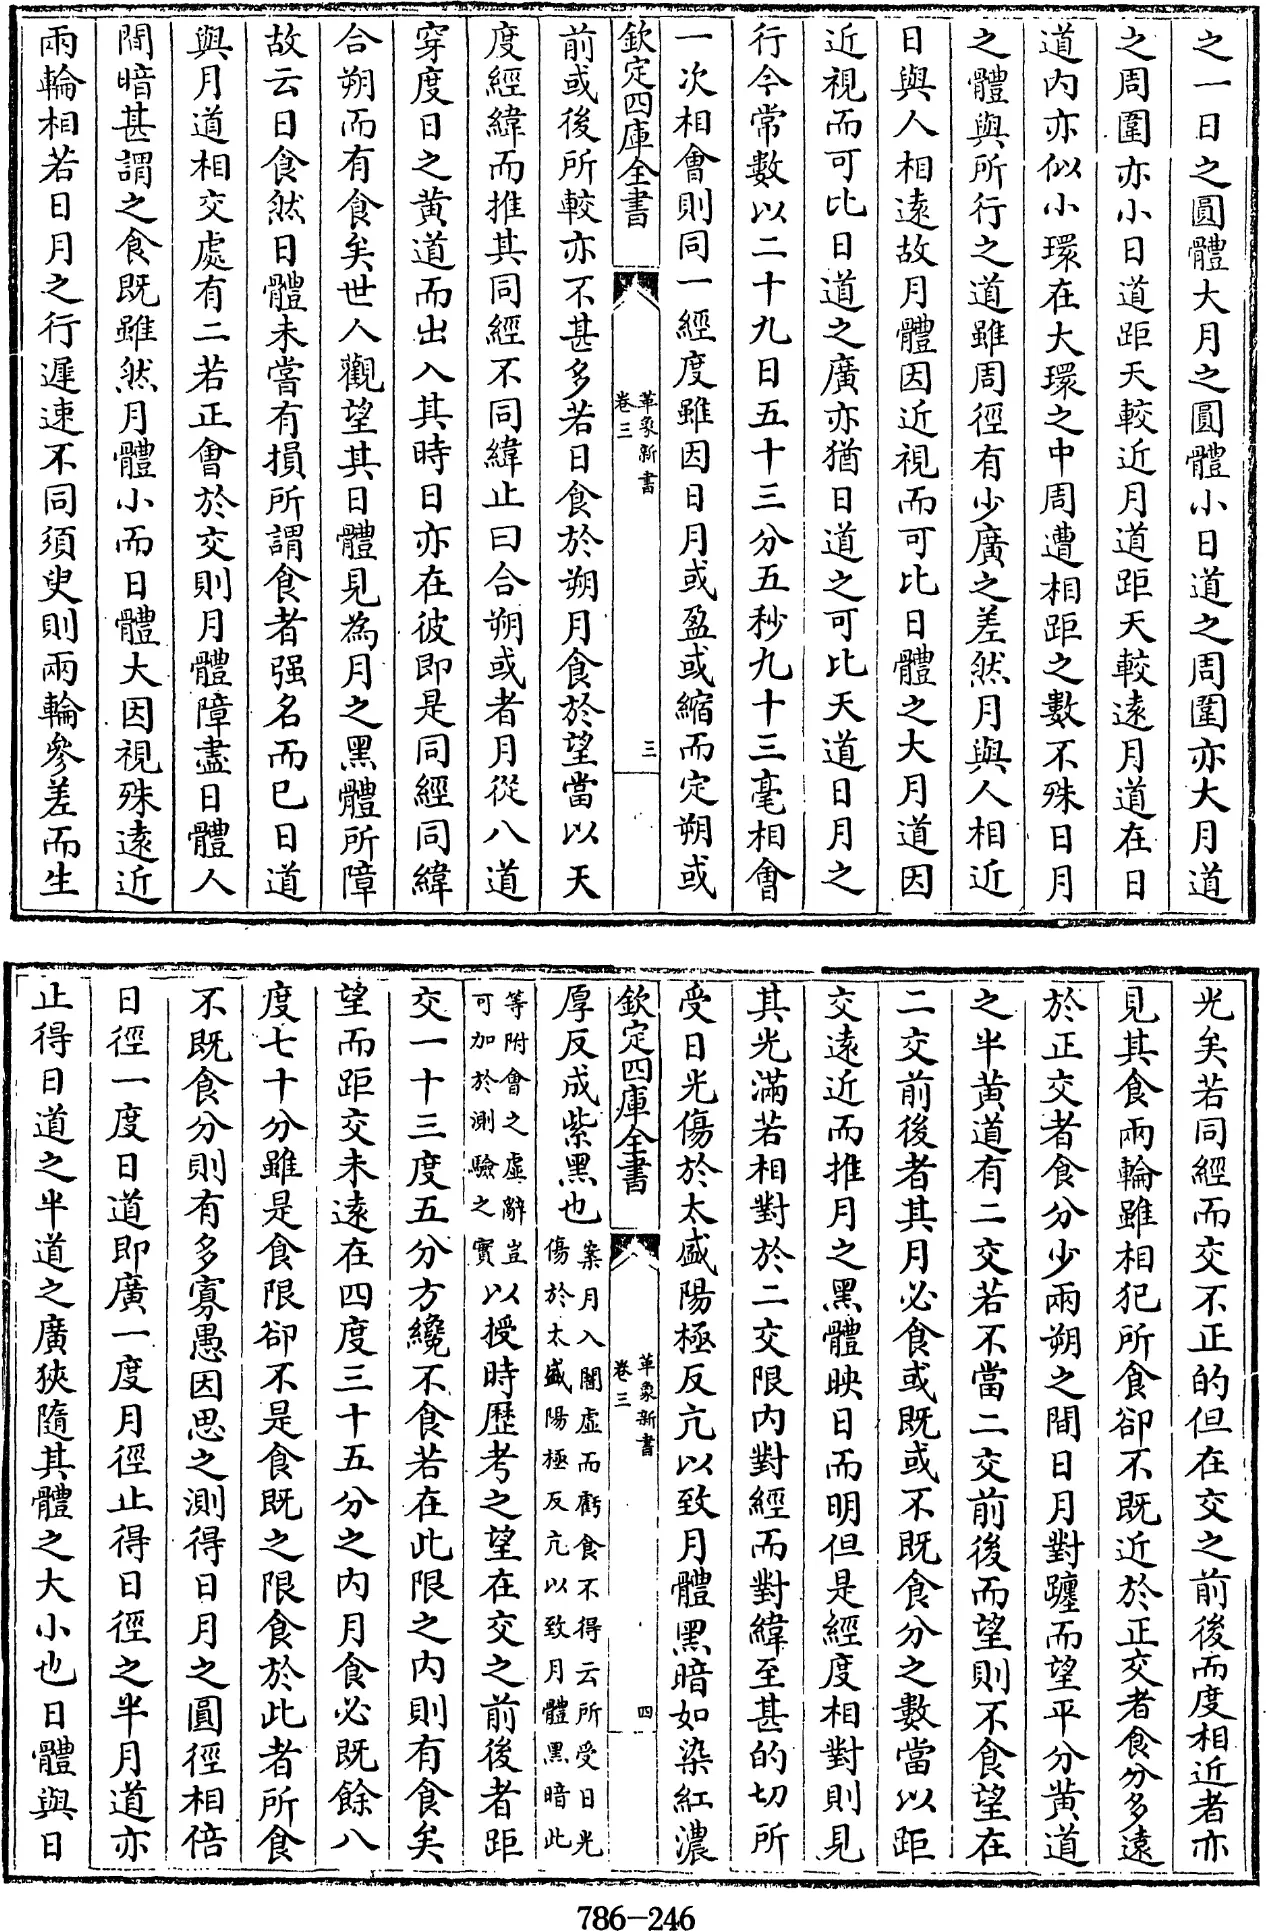 之一日之圓體大月之圓體小日道之周圍亦大月道
之周圍亦小日道距天較近月道距天較遠月道在日
道内亦似小環在大環之中周遭相距之數不殊日月
之體與所行之道雖周徑有少廣之差然月與人相近
日與人相遠故月體因近視而可比日體之大月道因
近視而可比日道之廣亦猶日道之可比天道日月之
行今常數以二十九日五十三分五秒九十三毫相會
一次相會則同一經度雖因日月或盈或縮而定朔或
欽定四庫全書
革象新書
卷三
三
前或後所較亦不甚多若日食於朔月食於望當以天
度經緯而推其同經不同緯止曰合朔或者月從八道
穿度日之黄道而出入其時日亦在彼即是同經同緯
合朔而有食矣世人觀望其日體見為月之黑體所障
故云日食然日體未嘗有損所謂食者强名而已日道
與月道相交處有二若正會於交則月體障盡日體人
間暗甚謂之食既雖然月體小而日體大因視殊遠近
兩輪相若日月之行遲速不同須臾則兩輪參差而生
光矣若同經而交不正的但在交之前後而度相近者亦
見其食兩輪雖相犯所食卻不既近於正交者食分多遠
於正交者食分少兩朔之間日月對躔而望平分黄道
之半黄道有二交若不當二交前後而望則不食望在
二交前後者其月必食或既或不既食分之數當以距
交遠近而推月之黑體映日而明但是經度相對則見
其光滿若相對於二交限内對經而對緯至甚的切所
受日光傷於太盛陽極反亢以致月體黑暗如染紅濃
欽定四庫全書
革象新書
卷三
四
厚反成紫黑也案月入闇虛而虧食不得云所受日光
傷於太盛陽極反亢以致月體黑暗此
等附會之虛辭豈
可加於測驗之實以授時歷考之望在交之前後者距
交一十三度五分方纔不食若在此限之内則有食矣
望而距交未遠在四度三十五分之内月食必既餘八
度七十分雖是食限卻不是食既之限食於此者所食
不既食分則有多寡愚因思之測得日月之圓徑相倍
日徑一度日道即廣一度月徑止得日徑之半月道亦
止得日道之半道之廣狹隨其體之大小也日體與日
786-246